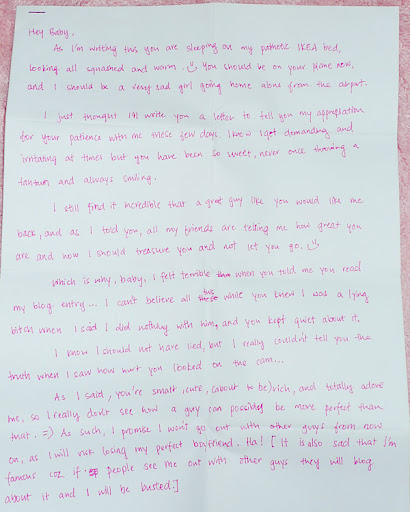 Hey Baby,
As I'm writing this you are sleeping on my pathetic IKEA bed,
looking all squashed and warm. You should be on your plane now,
and I should be a very sad girl going home alone from the airport.
I just thought I'll write you a letter to tell you my appreciation
for your patience with me these few days. I know I get demanding and
irritating at times but you have been so sweet, never once throwing a
tantrum and always smiling.
I still find it incredible that a great guy like you would like me
back, and as I told you, all my friends are telling me how great you
are and how I should treasure you and not let you go.
Which is why, baby, I felt terrible when you told me you read
my blog entry... I can't believe all this while you knew I was a lying
bitch when I said I did nothing with him, and you kept quiet about it.
I know I should not have lied, but I really couldn't tell you the
truth when I saw how hurt you looked on the cam...
As I said, you're smart, cute, (about to be) rich, and totally adore
me, so I really don't see how a guy can possibly be more perfect than
that. =) As such, I promise I won't go out with other guys from now
on, as I will risk losing my perfect boyfriend. Ha! [It is also sad that I'm
famous coz if people see me out with other guys they will blog
about it and I will be busted.]